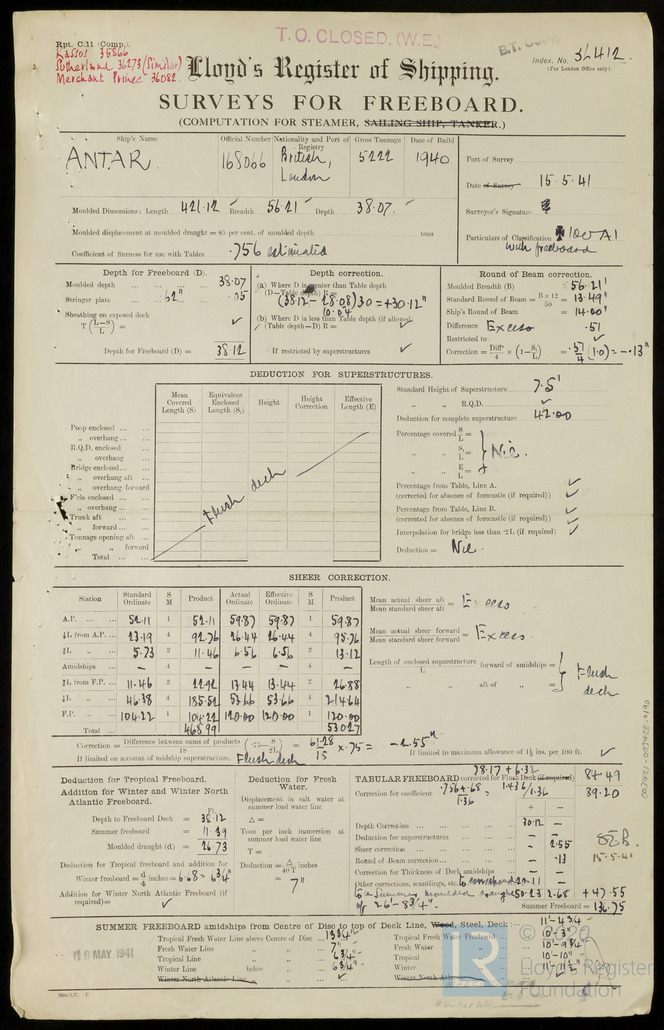 T.O. CLOSED. (W.E.)
Rpt. C.11 (Comp.).
Lassoi 35866
Sutherland 36273 (Similar)
Merchant Prince 36082
Index. No. 36412.
(For London Office only).
Lloyd's Register of Shipping.
SURVEYS FOR FREEBOARD.
(COMPUTATION FOR STEAMER, SAILING SHIP, TANKER.)
Ship's Name Official Number Nationality and Port of Registry Gross Tonnage Date of Build
ANTAR. 168066 British, London 5222 1940
Port of Survey
Date of Survey 15.5.41
Surveyor's Signature
Particulars of Classification ✠100A1
with freeboard
Moulded Dimensions: Length 421.12 Breadth 56.21 Depth 38.07
Moulded displacement at moulded draught = 85 per cent. of moulded depth tons
Coefficient of fineness for use with Tables .756 estimated
Depth for Freeboard (D).
Moulded depth 38.07
Stringer plate .62" .05
Sheathing on exposed deck
T (L-S/L) = ✓
Depth for Freeboard (D) = 38.12
Depth correction.
(a) Where D is greater than Table depth
(D—Table depth) R =
(38.12 - 28.08) 30 = +30.12"
10.04
(b) Where D is less than Table depth (if allowed)
(Table depth—D) R = ✓
If restricted by superstructures ✓
Round of Beam correction.
Moulded Breadth (B) 56.21'
Standard Round of Beam = B × 12 / 50 = 13.49"
Ship's Round of Beam = 14.00"
Difference Excess .51
Restricted to ✓
Correction = Diff/4 × (1 - S/L) = .51/4 (1.0) = -.13"
DEDUCTION FOR SUPERSTRUCTURES.
Mean Covered Length (S) Equivalent Enclosed Length (S₁) Height Height Correction Effective Length (E)
Poop enclosed
„ overhang
R.Q.D. enclosed
„ overhang
Bridge enclosed
„ overhang aft
„ overhang forward
F'cle enclosed
„ overhang
Trunk aft
„ forward
Tonnage opening aft
„ „ forward
Total
Flush deck
Standard Height of Superstructure 7.5'
„ „ R.Q.D. ✓
Deduction for complete superstructure 42.00
Percentage covered S/L =
„ „ S₁/L = Nil.
„ „ E/L =
Percentage from Table, Line A. ✓
(corrected for absence of forecastle (if required))
Percentage from Table, Line B. ✓
(corrected for absence of forecastle (if required)) ✓
Interpolation for bridge less than ·2L (if required) ✓
Deduction = Nil.
SHEER CORRECTION.
Station Standard Ordinate S M Product Actual Ordinate Effective Ordinate S M Product
A.P. 52.11 1 52.11 59.87 59.87 1 59.87
⅙L from A.P. 23.19 4 92.76 26.44 26.44 4
⅓L „ 5.73 2 11.46 6.56 6.56 2 13.12
Amidships — 4 — — — 4 —
⅓L from F.P. 11.46 2 22.92 13.44 13.44 2 26.88
⅙L „ 46.38 4 185.52 53.66 53.66 4 214.64
F.P. 104.22 1 104.22 120.00 120.00 1 120.00
Total 468.99 530.27
Mean actual sheer aft / Mean standard sheer aft = Excess
Mean actual sheer forward / Mean standard sheer forward = Excess
Length of enclosed superstructure / L forward of amidships =
„ „ aft of „ =
Flush deck
Correction = Difference between sums of products / 18 (·75 - S/2L) = 61.28/18 × .75 = -2.55"
If limited on account of midship superstructure. Flush deck
If limited to maximum allowance of 1½ ins. per 100 ft. ✓
Deduction for Tropical Freeboard.
Addition for Winter and Winter North Atlantic Freeboard.
Ft.
Depth to Freeboard Deck = 38.12
Summer freeboard = 11.39
Moulded draught (d) = 26.73
Deduction for Tropical freeboard and addition for
Winter freeboard = d/4 inches = 6.68 = 6¾"
Addition for Winter North Atlantic Freeboard (if required) = ✓
Deduction for Fresh Water.
Displacement in salt water at summer load water line
Δ =
Tons per inch immersion at summer load water line
T =
Deduction = Δ/40T inches
= 7"
78.17 + 6.32
TABULAR FREEBOARD corrected for Flush Deck (if required) 84.49
Correction for coefficient .756+.68/1.36 = 1.436/1.36 89.20
+ —
Depth Correction 30.12 —
Deduction for superstructures — —
Sheer correction — 2.55
Round of Beam correction — .13
Correction for Thickness of Deck amidships — —
Other corrections, scantlings, etc. to correspond 20.11 —
to a Summer moulded draught 50.23 2.68 +47.55
of 26'-8¾"
Summer Freeboard = 136.75
15.5.41
SUMMER FREEBOARD amidships from Centre of Disc to top of Deck Line, Wood, Steel, Deck: 11'-4¾"
Tropical Fresh Water Line above Centre of Disc 13¾"
Fresh Water Line „ „ 7"
Tropical Line „ „ 6¾"
Winter Line below „ 6¾"
Winter North Atlantic Line „ „ ✓
Tropical Fresh Water Freeboard 10'-3"
Fresh Water „ 10'-9¾"
Tropical „ 10'-10"
Winter „ 11'-11½"
Winter North Atlantic „
16 MAY 1941
003421-003428-0190
© 2020
LR
Lloyd's Register
Foundation